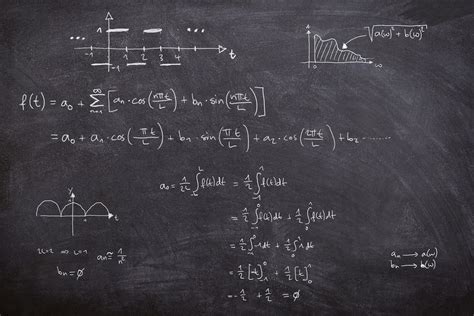 1
-1 1 2 3 4 t
√a(ω)² + b(ω)²
ω
f(t) = a₀ + ∑ₙ₌₁^∞ [aₙ·cos(nπt/L) + bₙ·sin(nπt/L)]
= a₀ + a₁·cos(π t/L) + b₁·sin(π t/L) + a₂·cos(2π t/L) + b₂ ........
a₀ = 1/2L ∫₋L^L f(t)dt = 1/2 ∫₋₁^1 f(t)dt
= 1/2 ∫₋₁^0 f(t)dt + 1/2 ∫₀^1 f(t)dt
= 1/2 ∫₋₁^0 -1dt + 1/2 ∫₀^1 1dt
= 1/2 [-t]₋₁^0 + 1/2 [t]₀^1
= -1/2 + 1/2 = ∅
y
t
bₙ = ∅
aₙ → a(ω)
bₙ → b(ω)